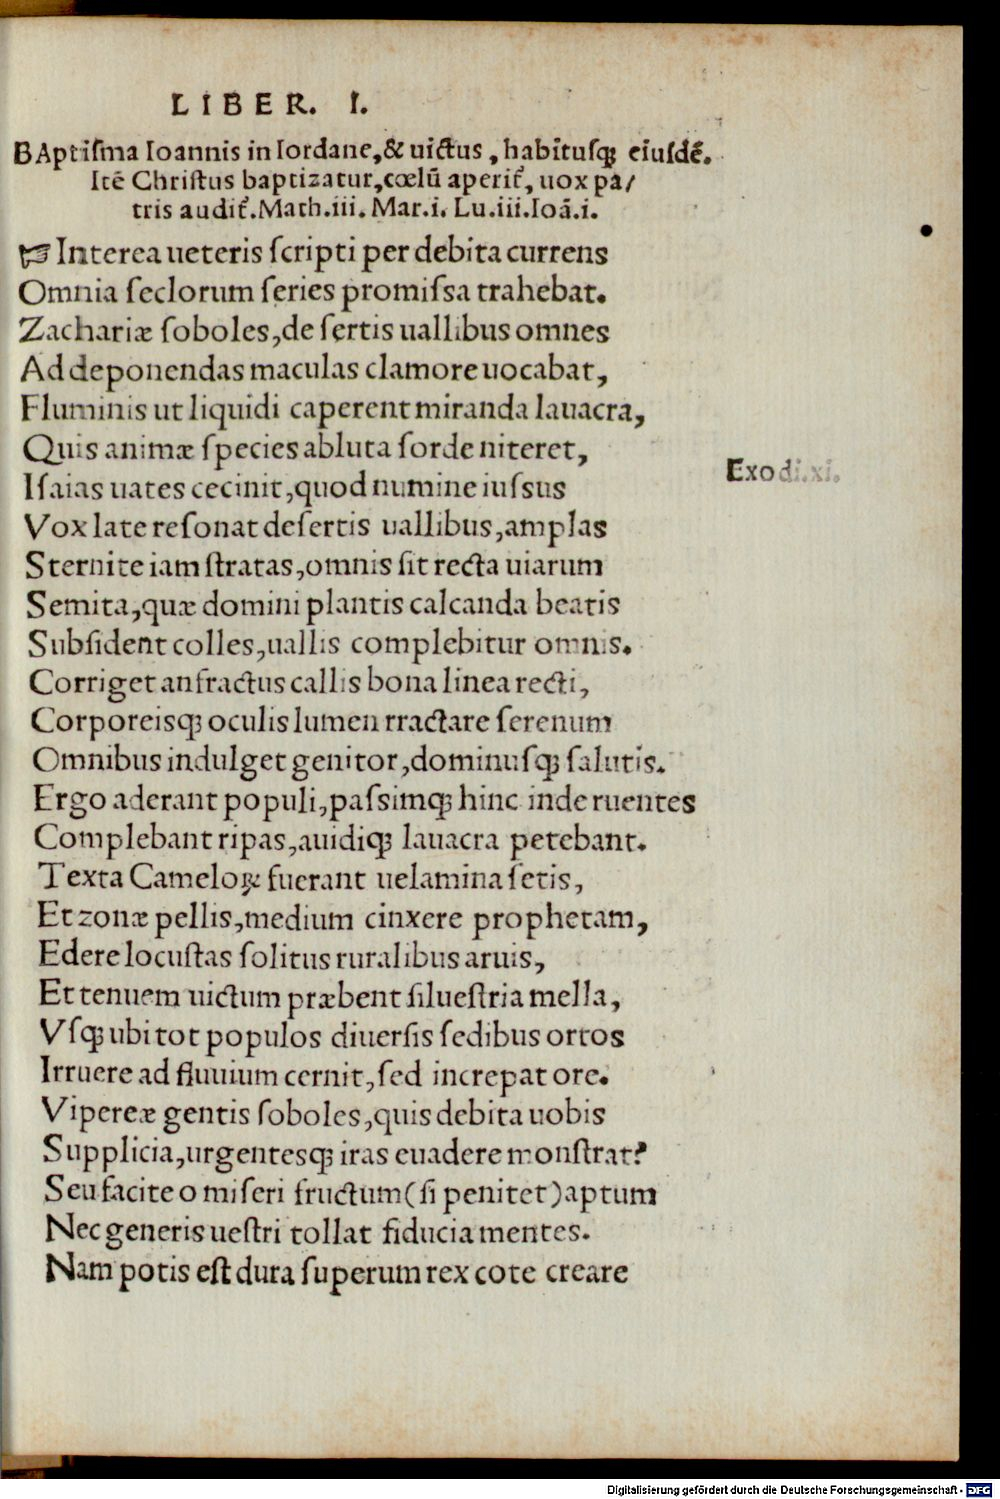 LIBER. I.
BAptiſma Ioannis in Iordane,& uictus, habituſqꝫ eiuſdē.
Itē Chriſtus baptizatur,cœlū aperit᷑, uox pa/
tris audit᷑.Math.iii. Mar.i. Lu.iii.Ioā.i.
☞ Interea ueteris ſcripti per debita currens
Omnia ſeclorum ſeries promiſſa trahebat.
Zachariæ ſoboles,de ſertis uallibus omnes
Ad deponendas maculas clamore uocabat,
Fluminis ut liquidi caperent miranda lauacra,
Quis animæ ſpecies abluta ſorde niteret,
Iſaias uates cecinit,quod numine iuſsus
Exodi.xi.
Vox late reſonat deſertis uallibus,amplas
Sternite iam ſtratas,omnis ſit recta uiarum
Semita,quæ domini plantis calcanda beatis
Subſident colles,uallis complebitur omnis.
Corriget anfractus callis bona linea recti,
Corporeisqꝫ oculis lumen rractare ſerenum
Omnibus indulget genitor,dominuſqꝫ ſalutis.
Ergo aderant populi,paſsimqꝫ hinc inde ruentes
Complebant ripas,auidiqꝫ lauacra petebant.
Texta Cameloꝝ fuerant uelamina ſetis,
Et zonæ pellis,medium cinxere prophetam,
Edere locuſtas ſolitus ruralibus aruis,
Et tenuem uictum præbent ſilueſtria mella,
Vſqꝫ ubi tot populos diuerſis ſedibus ortos
Irruere ad fluuium cernit,ſed increpat ore.
Vipereæ gentis ſoboles,quis debita uobis
Supplicia,urgentesqꝫ iras euadere monſtrat?
Seu facite o miſeri fructum(ſi penitet)aptum
Nec generis ueſtri tollat fiducia mentes.
Nam potis eſt dura ſuperum rex cote creare
Digitalisierung gefördert durch die Deutsche Forschungsgemeinschaft - DFG